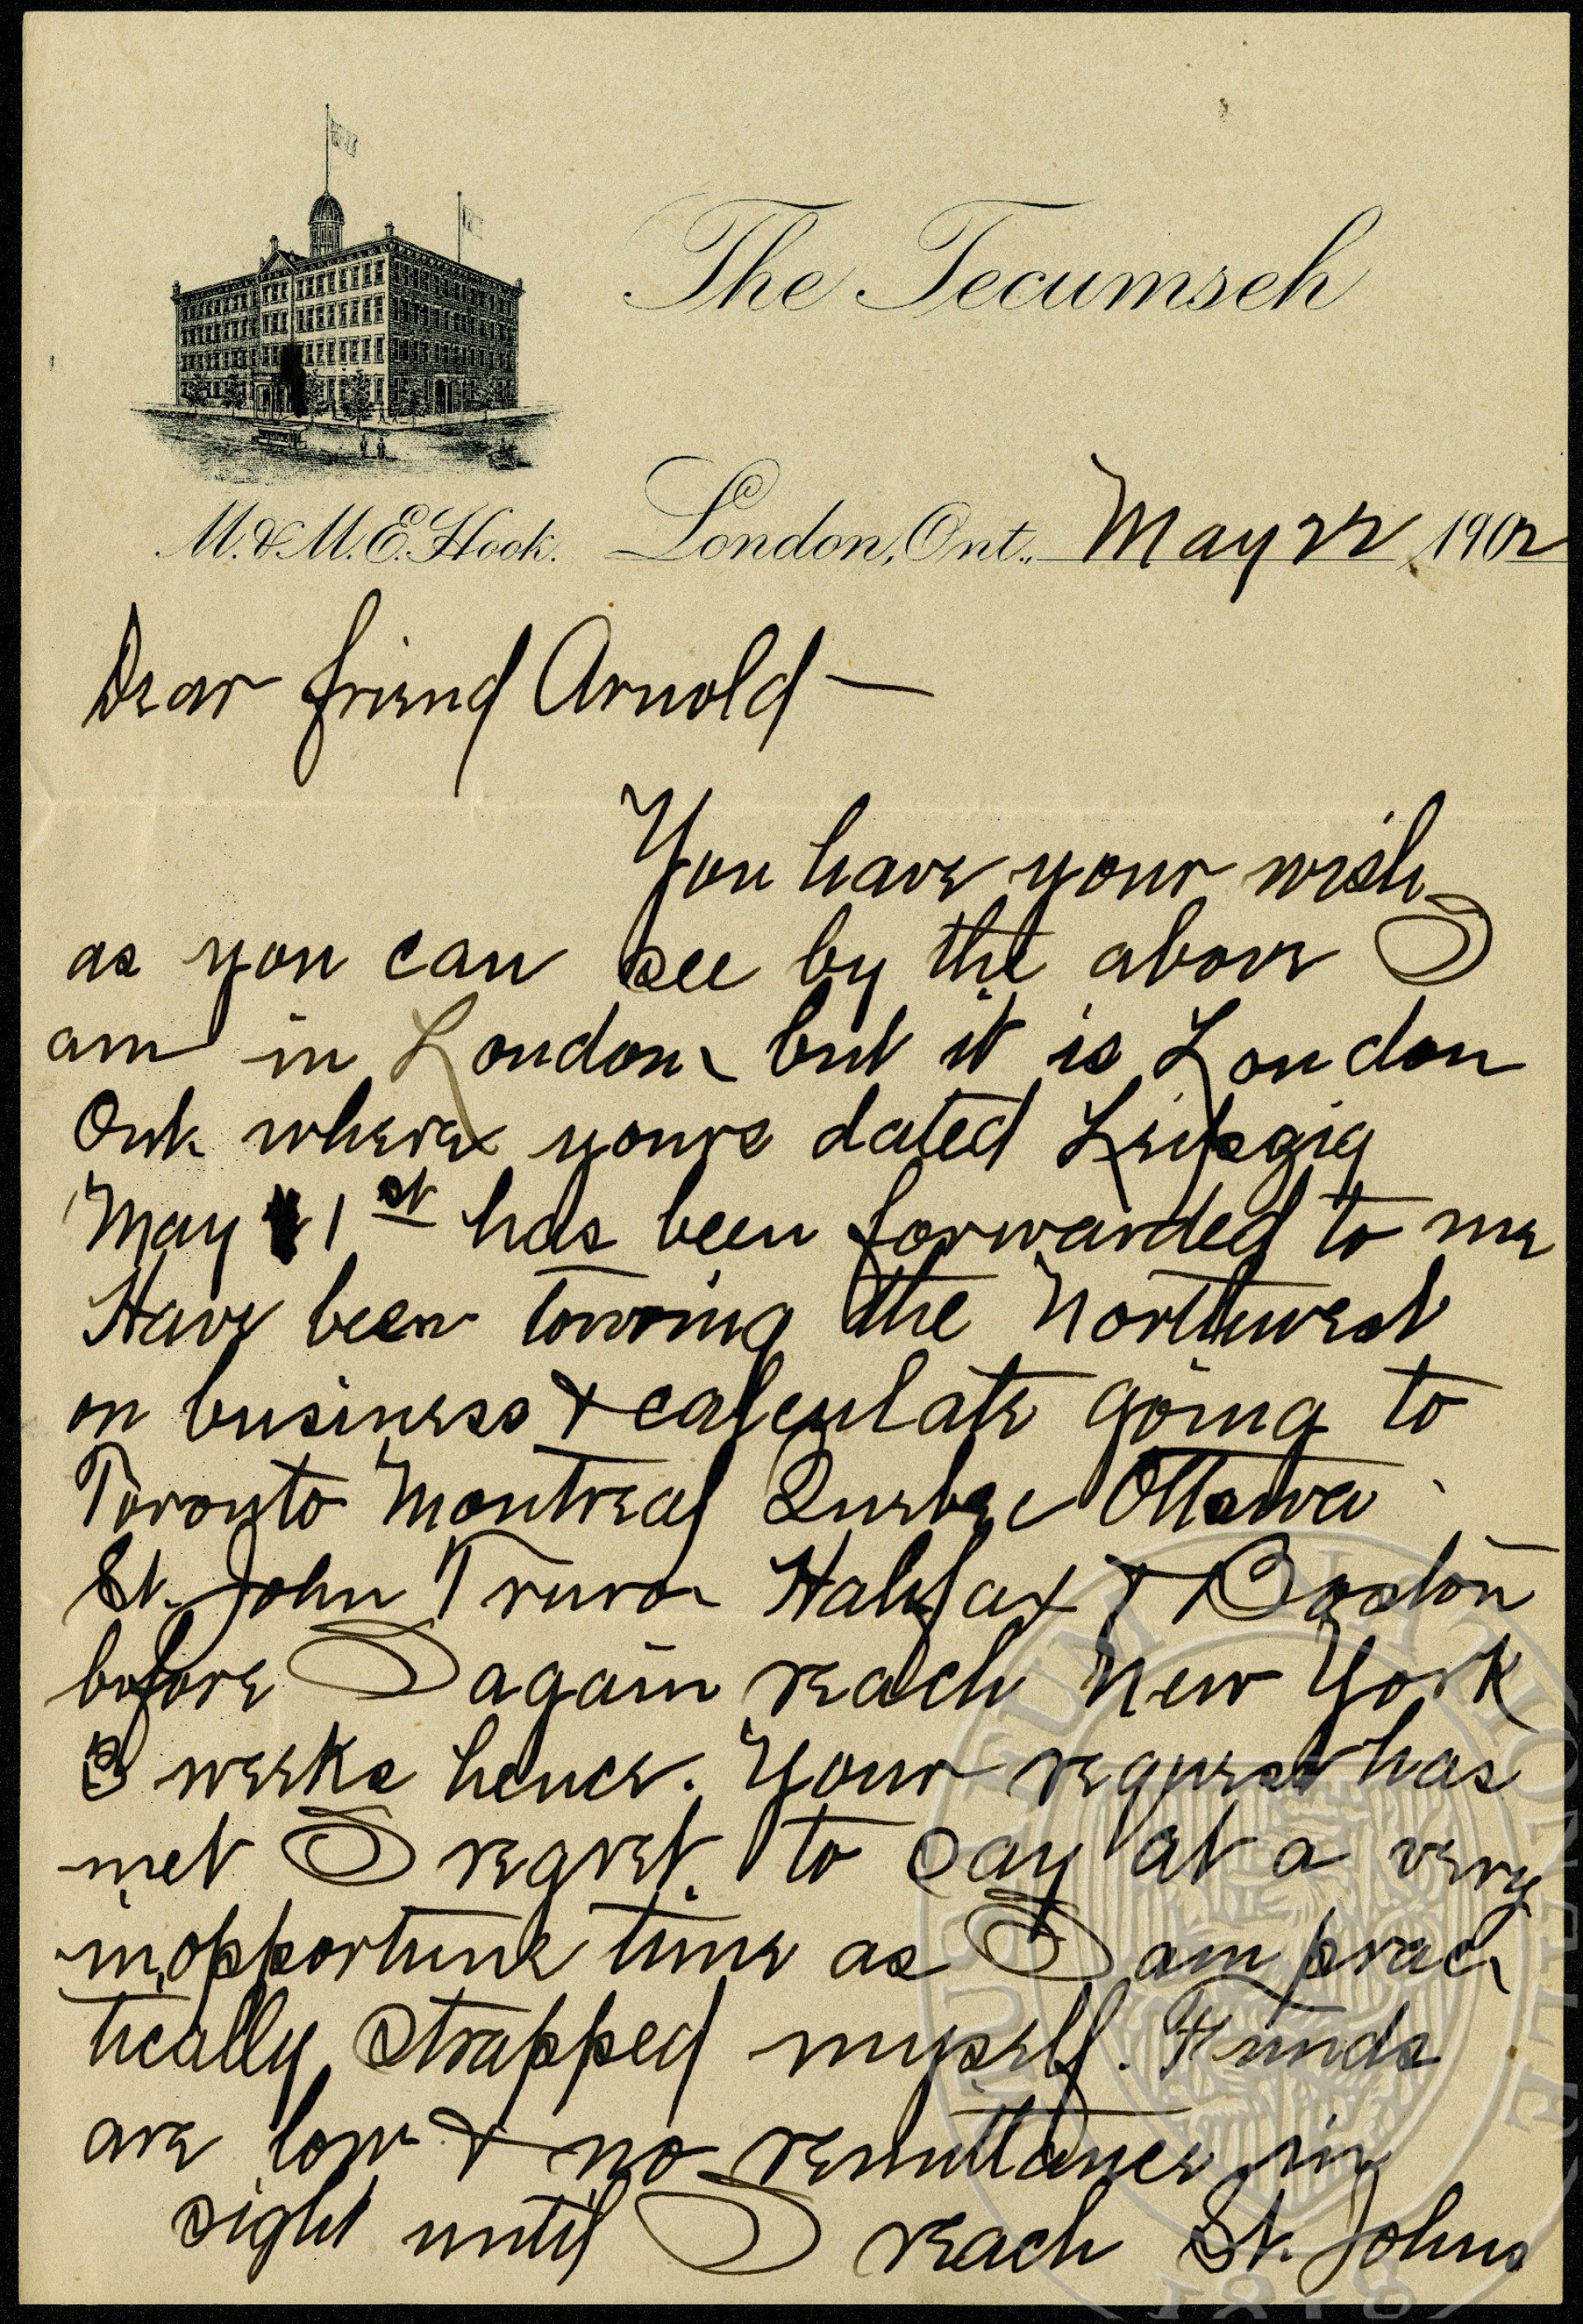 The Tecumseh
M. & M. E. Hook. London, Ont., May 22 1902
Dear friend Arnold —
You have your wish
as you can see by the above I
am in London but it is London
Ont where yours dated Leipzig
May 1st has been forwarded to me
Have been touring the Northwest
on business & calculate going to
Toronto Montreal Quebec Ottawa
St. John Truro Halifax & Boston
before I again reach New York
3 weeks hence. Your request has
met I regret to say at a very
inopportune time as I am prac
tically strapped myself. Funds
are low & no remittance in
sight until I reach St. Johns